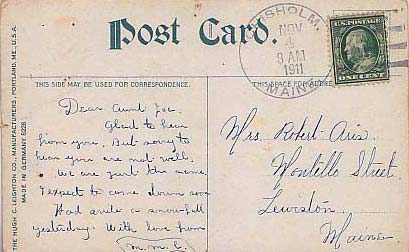 Post Card.
THIS SIDE MAY BE USED FOR CORRESPONDENCE.
THE HUGH C. LEIGHTON CO., MANUFACTURERS, PORTLAND, ME. U.S.A.
MADE IN GERMANY. 5228
Dear Aunt
Glad to hear
from you. But sorry to
hear you are not well.
We are just the same.
I expect to come down soon
Had quite a snowfall
yesterday. With love from
(M.M.C.)
CHISHOLM,
NOV
4
8 AM
1911
MAINE
U.S. POSTAGE
ONE CENT
THIS SPACE FOR ADDRESS
Mrs Robert
Montello Street
Lewiston
Maine